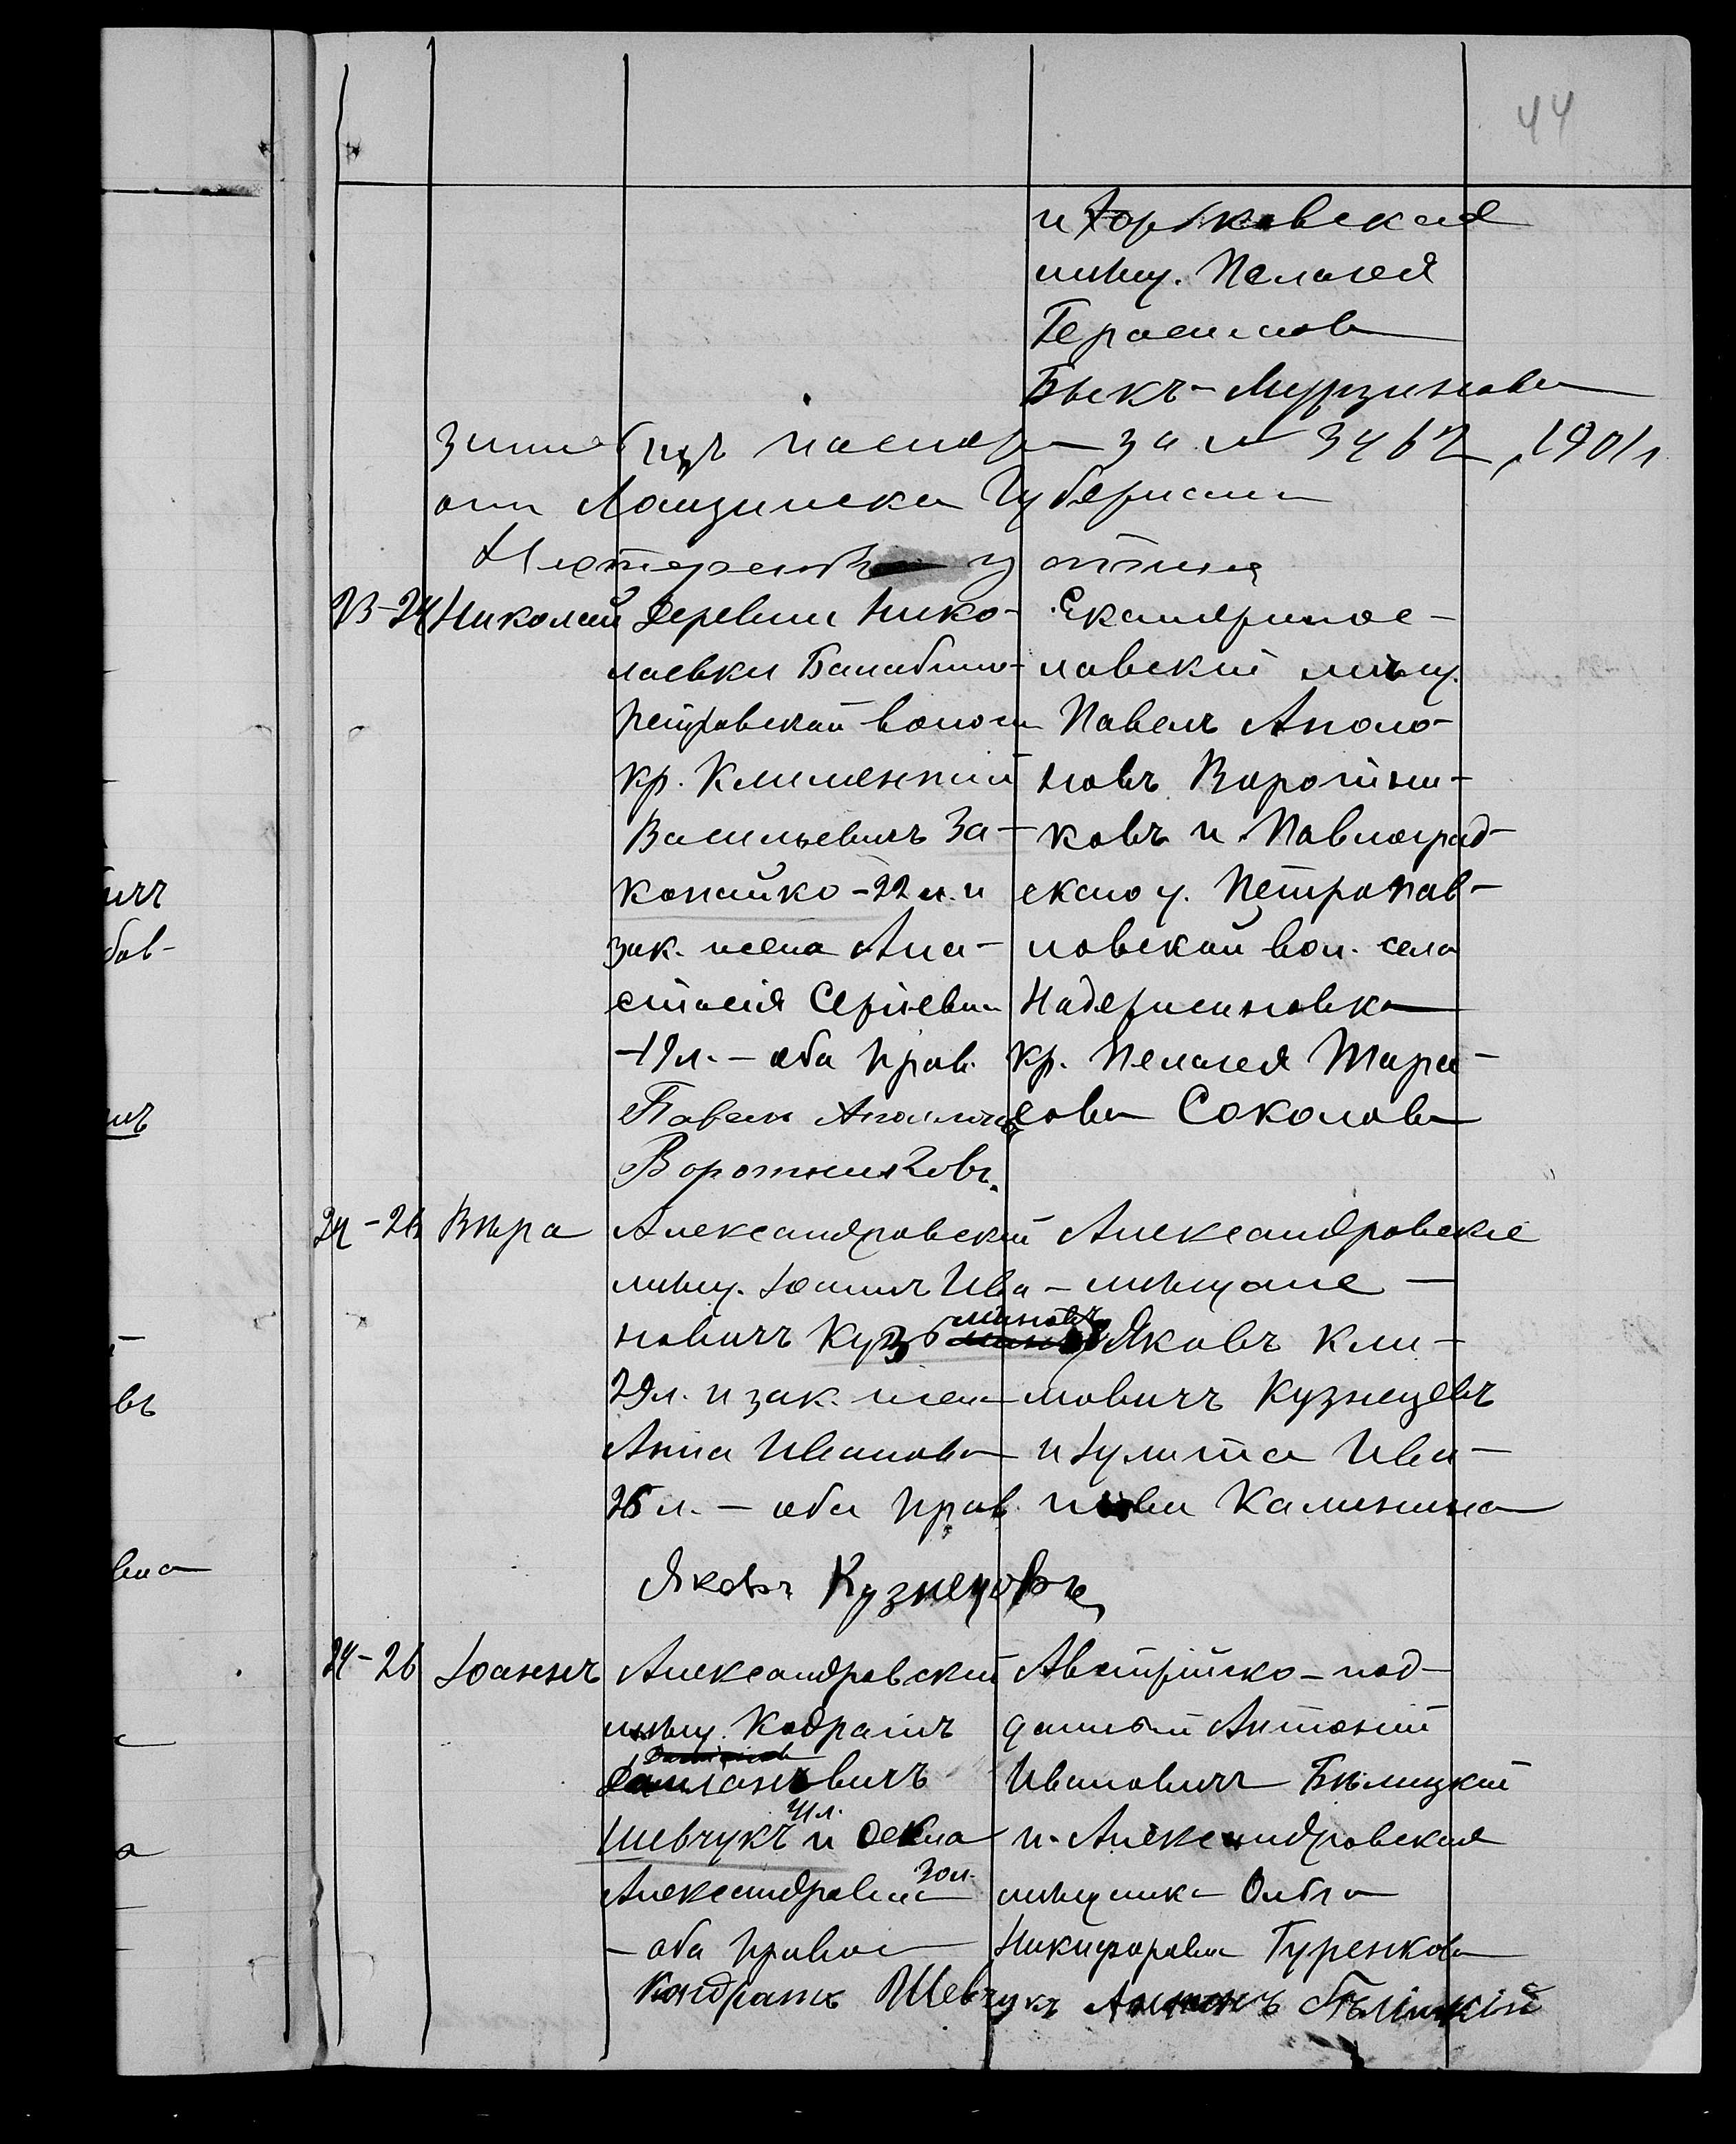 44
и Харьковская
мѣщ. Пелагея
Герасимова
Быкъ-Мурзинова
паспор за № 3462, 1901 г
от Ломзинска Губерніи
23-24 Николай
Деревни Нико-
лаевки Балабино-
петровской волости
кр. Климентій
Васильевичъ За-
копайко - 22 л. и
зак. жена Ана-
стасія Сергіевна
- 19 л. - оба прав.
Павелъ
Воротниковъ.
Екатеринос-
лавскій мѣщ.
Павелъ Аполо-
новъ Воротни-
ковъ и Павлоград-
скаго у. Петропав-
ловской вол. села
кр. Пелагея Тара-
сова Соколова
24-26 Вѣра
Александровскій
мѣщ. Іоаннъ Ива-
новичъ Кузьминовъ
29 л. и зак. жена
Анна Иванова
26 л. - оба прав.
Александровскіе
мѣщане -
Яковъ Кли-
мовичъ Кузнецовъ
и Іулита Ива-
нова Калинина
Яковъ Кузнецовъ
24-26 Іоаннъ
Александровскій
мѣщ. Кодратъ
Даміановичъ
Шевчукъ 41 л. и Ѳекла
Александровна 30 л.
- оба правос
Австрійско-под-
данный Антоній
Ивановичъ Бѣлицкій
и Александровская
мѣщанка Ольга
Никифорова Гуренкова
Кондратъ Шевчукъ Антонъ Бѣліцкій